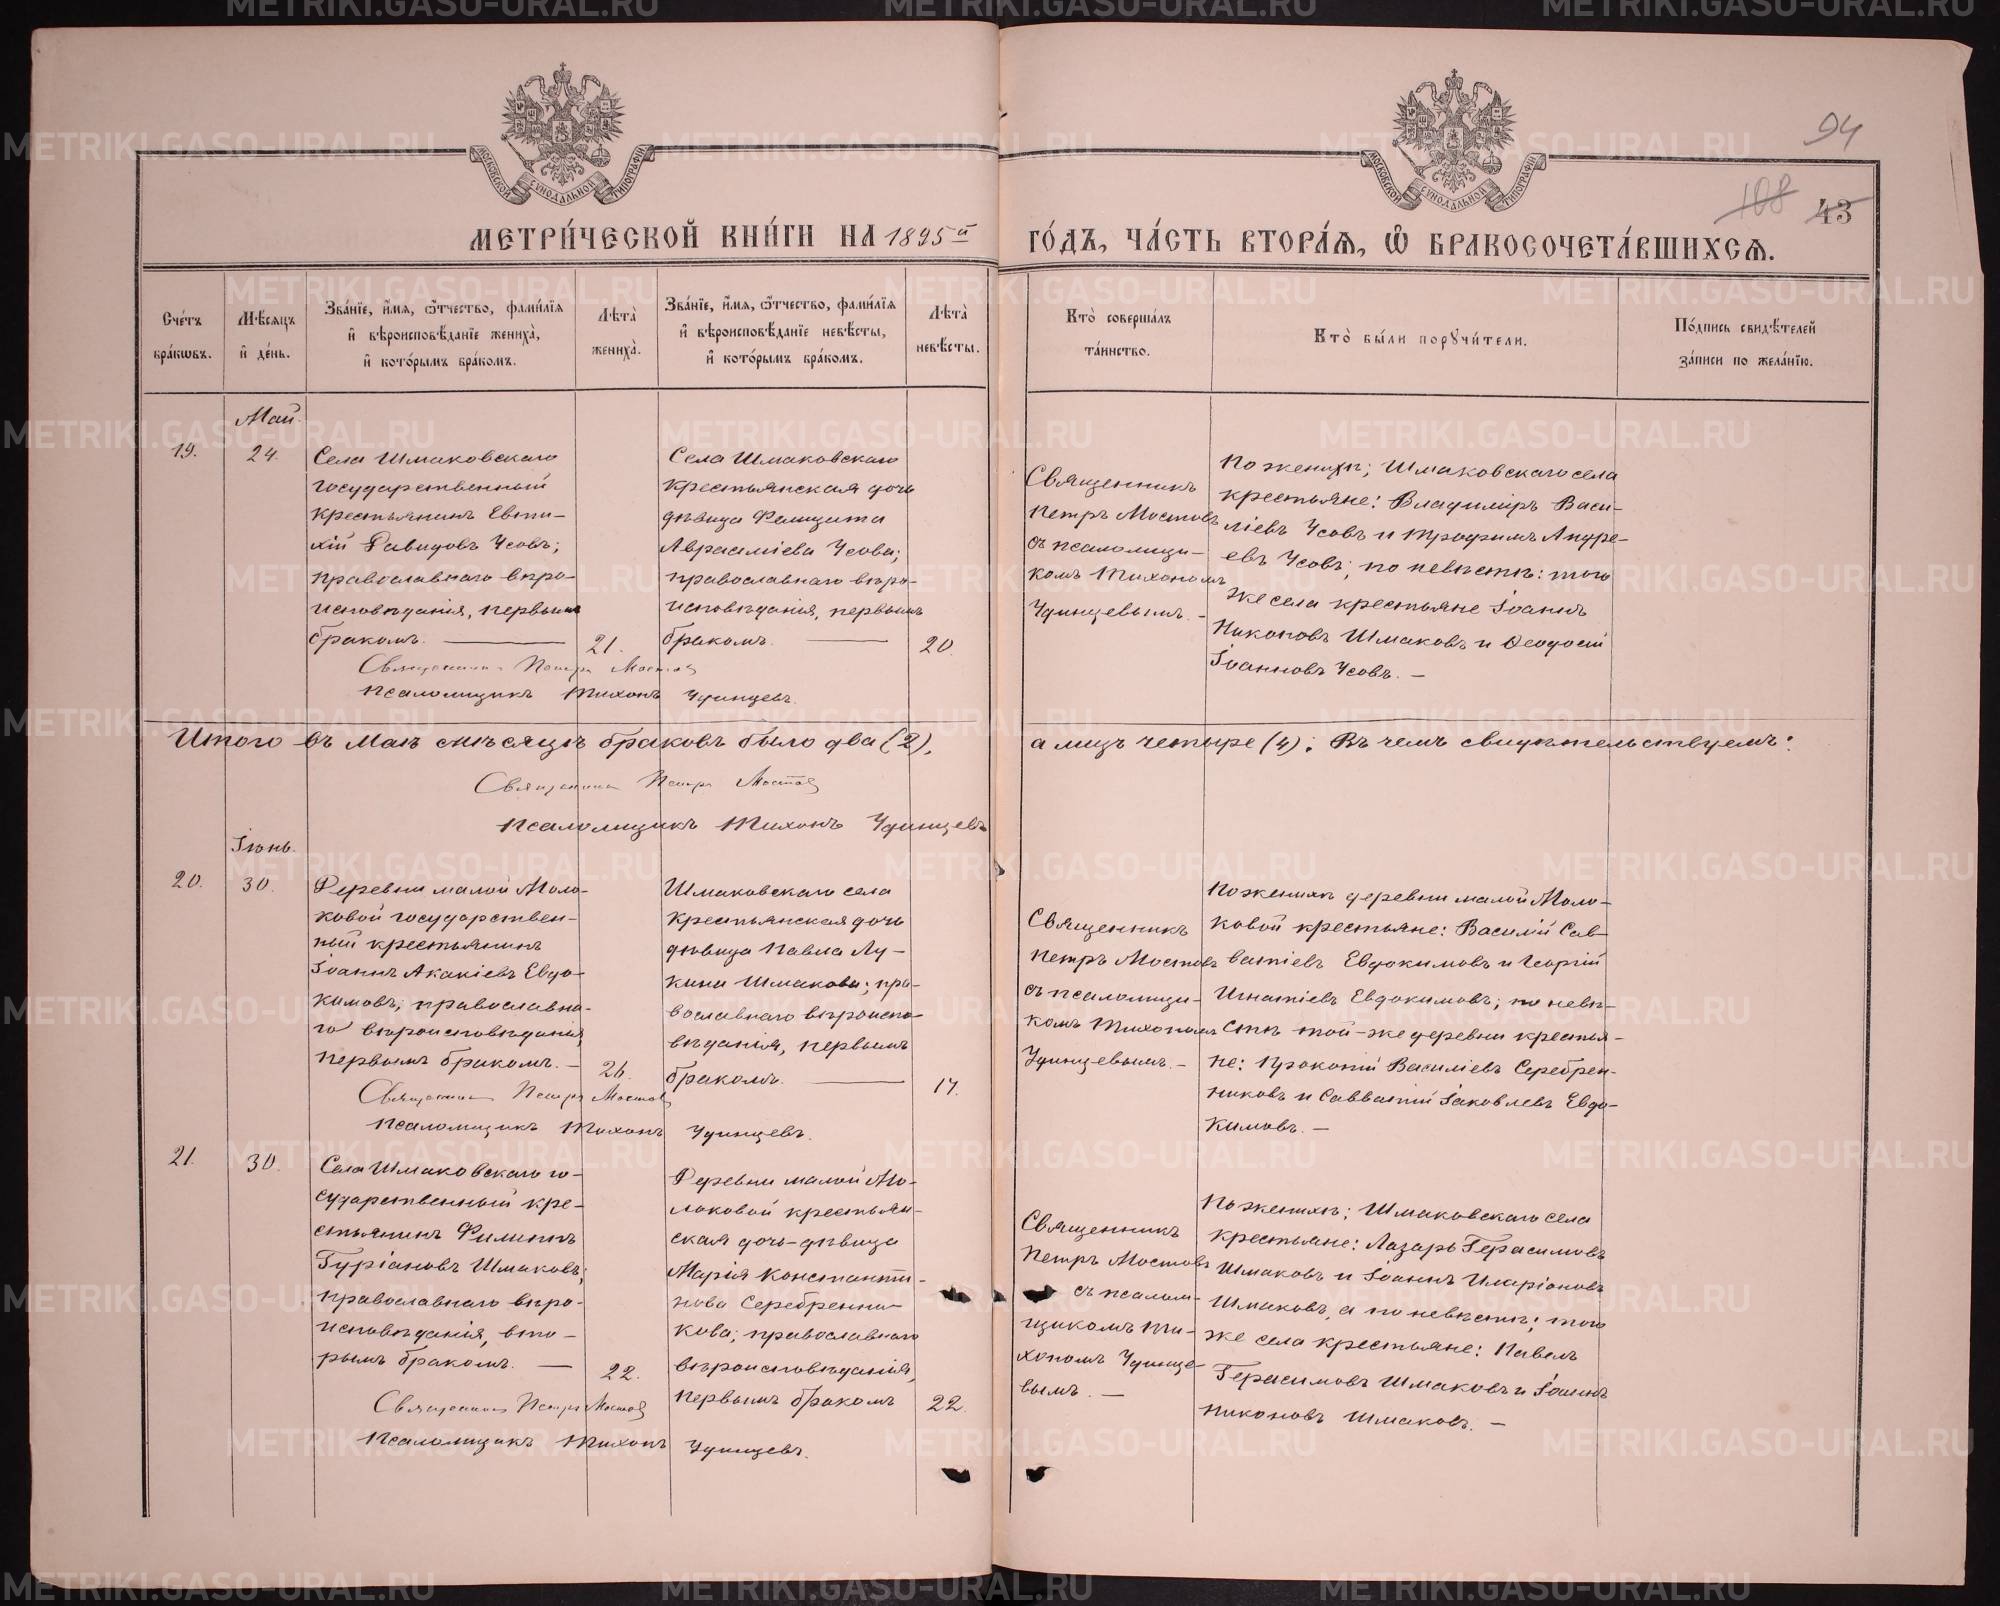 94
108 43
МЕТРИ́ЧЕСКОЙ КНИ́ГИ НА 1895й ГО́ДЪ, ЧА́СТЬ ВТОРА́Я, Ѡ҆ БРАКОСОЧЕТА́ВШИХСЯ.
Сче́тъ бра́кѡвъ.
Мѣ́сяцъ и҆ де́нь.
Зва́нїе, и҆́мя, ѻ҆́тчество, фами́лїя и҆ вѣроисповѣ́данїе жениха̀, и҆ кото́рымъ бра́комъ.
Лѣта̀ жениха̀.
Зва́нїе, и҆́мя, ѻ҆́тчество, фами́лїя и҆ вѣроисповѣ́данїе невѣ́сты, и҆ кото́рымъ бра́комъ.
Лѣта̀ невѣ́сты.
Кто̀ соверша́лъ та́инство.
Кто̀ бы́ли порꙋчи́тели.
По́дпись свидѣ́телей за́писи по жела́нїю.
19.
Май.
24.
Села Шмаковскаго
государственный
крестьянинъ Евти-
хій Давидовъ Усовъ;
православнаго вѣро-
исповѣданія, первымъ
бракомъ.
21.
Села Шмаковскаго
крестьянская дочь
дѣвица Фелицита
Аврааміева Усова;
православнаго вѣро-
исповѣданія, первымъ
бракомъ.
20.
Священникъ
Петръ Мостовъ
съ псаломщи-
комъ Тихономъ
Удинцевымъ. -
По женихѣ; Шмаковскаго села
крестьяне: Владиміръ Васи-
ліевъ Усовъ и Трофимъ Андре-
евъ Усовъ; по невѣстѣ: того
же села крестьяне Іоаннъ
Никоновъ Шмаковъ и Ѳеодосій
Іоанновъ Усовъ. -
Священникъ Петръ Мостовъ
Псаломщикъ Тихонъ Удинцевъ.
Итого въ Маѣ мѣсяцѣ браковъ было два (2), а лицъ четыре (4). Въ чемъ свидѣтельствуемъ:
Священникъ Петръ Мостовъ
Псаломщикъ Тихонъ Удинцевъ
20.
Іюнь.
30.
Деревни малой Моло-
ковой государствен-
ный крестьянинъ
Іоаннъ Акакіевъ Евдо-
кимовъ; православна-
го вѣроисповѣданія,
первымъ бракомъ. -
26.
Шмаковскаго села
крестьянская дочь
дѣвица Павла Лу-
кина Шмакова; пра-
вославнаго вѣроиспо-
вѣданія, первымъ
бракомъ.
17.
Священникъ
Петръ Мостовъ
съ псаломщи-
комъ Тихономъ
Удинцевымъ. -
По женихѣ деревни малой Моло-
ковой крестьяне: Василій Сав-
ватіевъ Евдокимовъ и Георгій
Игнатіевъ Евдокимовъ; по невѣ-
стѣ той-же деревни крестья-
не: Прокопій Василіевъ Серебрен-
никовъ и Савватій Іаковлевъ Евдо-
кимовъ. -
Священникъ Петръ Мостовъ
Псаломщикъ Тихонъ Удинцевъ.
21.
30.
Села Шмаковскаго го-
сударственный кре-
стьянинъ Филиппъ
Гуріановъ Шмаковъ;
православнаго вѣро-
исповѣданія, вто-
рымъ бракомъ. -
22.
Деревни малой Мо-
локовой крестьян-
ская дочь-дѣвица
Марія Константи-
нова Серебренни-
кова; православнаго
вѣроисповѣданія,
первымъ бракомъ
22.
Священникъ
Петръ Мостовъ
съ псалом-
щикомъ Ти-
хономъ Удинце-
вымъ. -
По женихѣ; Шмаковскаго села
крестьяне: Лазарь Герасимовъ
Шмаковъ и Іоаннъ Иларіоновъ
Шмаковъ, а по невѣстѣ; того
же села крестьяне: Павелъ
Герасимовъ Шмаковъ и Іоаннъ
Никоновъ Шмаковъ. -
Священникъ Петръ Мостовъ
Псаломщикъ Тихонъ Удинцевъ.